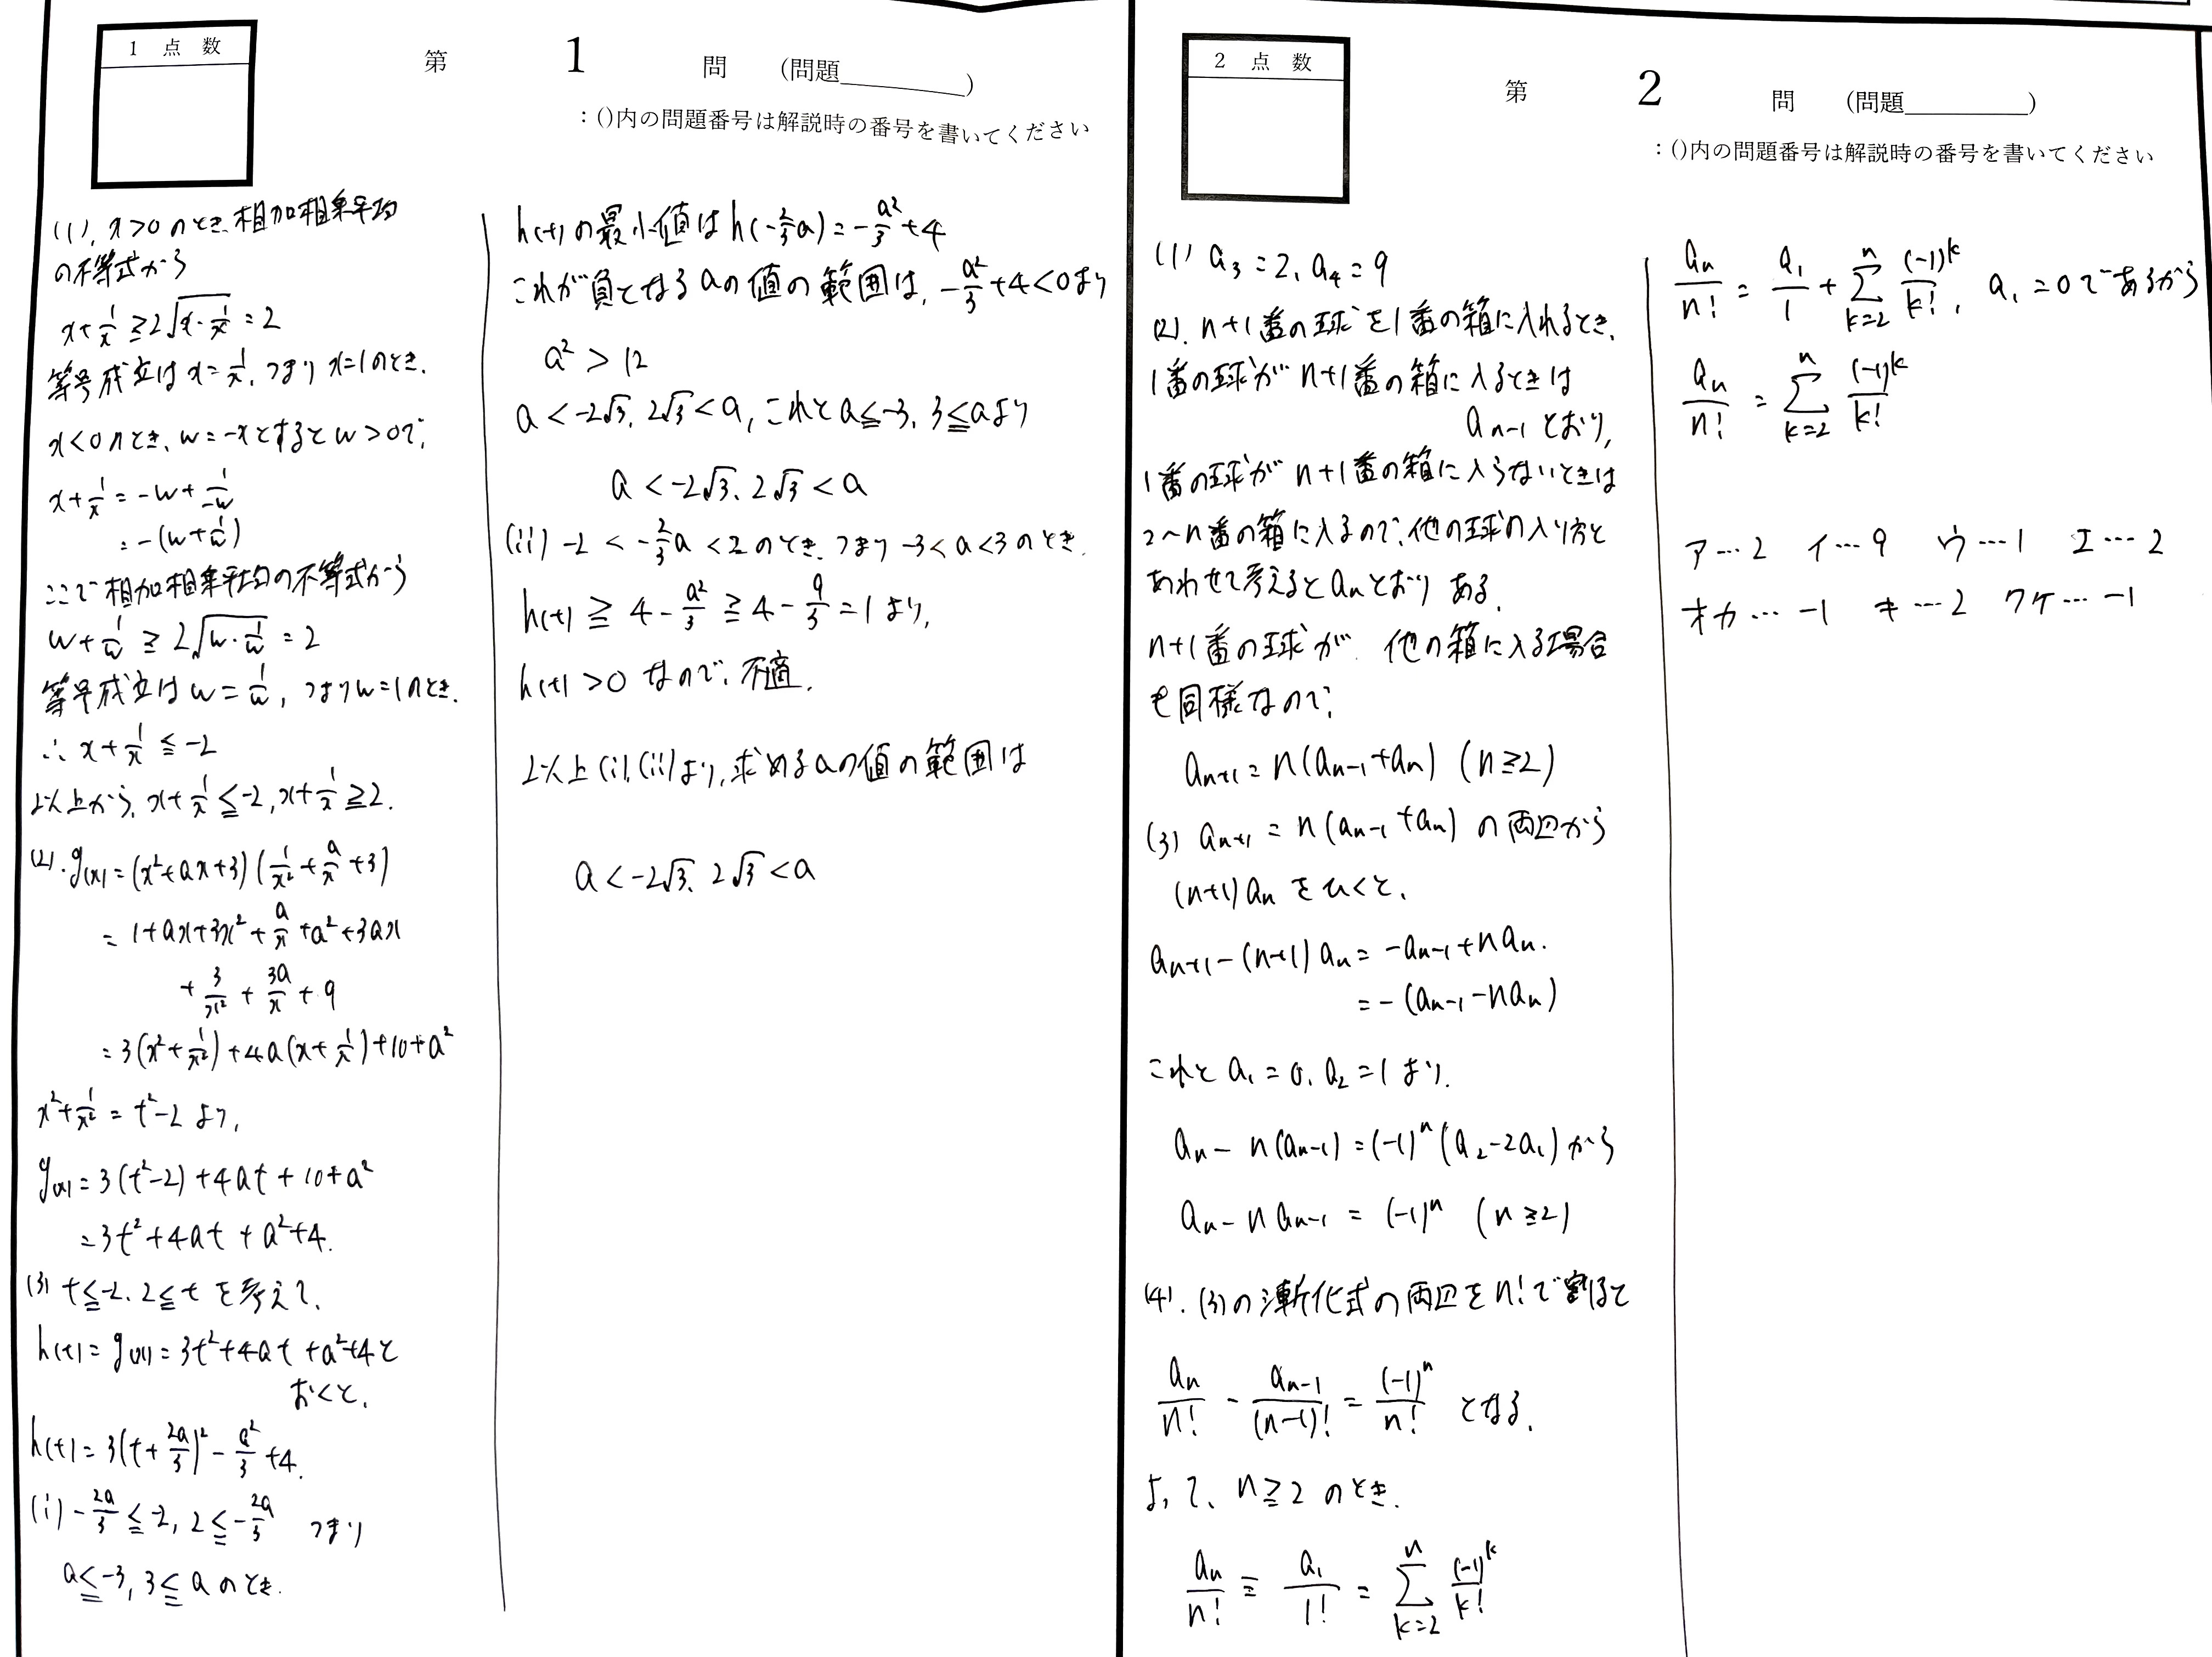 1 点 数
第 1 問 (問題________)
：()内の問題番号は解説時の番号を書いてください
(1). x>0 のとき、相加相乗平均
の不等式から
x+1/x ≧2√(x・1/x) =2
等号成立は x=1/x, つまり x=1のとき.
x<0 のとき、w=-xとするとw>0で、
x+1/x = -w+1/(-w)
= -(w+1/w)
ここで相加相乗平均の不等式から
w+1/w ≧ 2√(w・1/w) = 2
等号成立は w=1/w, つまりw=1のとき.
∴ x+1/x ≦ -2
以上から, x+1/x ≦-2, x+1/x ≧2.
(2). g(x) = (x²+ax+3)(1/x²+a/x+3)
= 1+ax+3x²+a/x+a²+3ax
+3/x²+3a/x+9
= 3(x²+1/x²)+4a(x+1/x)+10+a²
x²+1/x² = t²-2 より,
g(x) = 3(t²-2)+4at+10+a²
= 3t²+4at+a²+4.
(3) t≦-2, 2≦t を考えて、
h(t) = g(x) = 3t²+4at+a²+4と
おくと、
h(t) = 3(t+2a/3)²-a²/3+4.
(i) -2a/3 ≦-2, 2≦-2a/3 つまり
a≦-3, 3≦a のとき.
h(t) の最小値は h(-2/3a) = -a²/3+4
これが負となるaの値の範囲は, -a²/3+4<0より
a² > 12
a<-2√3, 2√3<a, これと a≦-3, 3≦aより
a<-2√3, 2√3<a
(ii) -2 < -2/3a < 2 のとき, つまり -3<a<3 のとき.
h(t) ≧ 4-a²/3 ≧ 4-9/3 = 1 より,
h(t) >0 なので, 不適.
以上(i), (ii)より, 求めるaの値の範囲は
a<-2√3, 2√3<a
2 点 数
第 2 問 (問題________)
：()内の問題番号は解説時の番号を書いてください
(1) a₃=2, a₄=9
(2). n+1番の球を1番の箱に入れるとき,
1番の球がn+1番の箱に入るときは
aₙ₋₁とおり,
1番の球がn+1番の箱に入らないときは
2〜n番の箱に入るので, 他の球の入り方と
あわせて考えるとaₙとおりある.
n+1番の球が 他の箱に入る場合
も同様なので,
aₙ₊₁=n(aₙ₋₁+aₙ) (n≧2)
(3) aₙ₊₁ = n(aₙ₋₁+aₙ) の両辺から
(n+1)aₙ をひくと,
aₙ₊₁-(n+1)aₙ = -aₙ₋₁+naₙ.
= -(aₙ₋₁-naₙ)
これと a₁=0, a₂=1 より.
aₙ-n(aₙ₋₁) = (-1)ⁿ(a₂-2a₁)から
aₙ-naₙ₋₁ = (-1)ⁿ (n≧2)
(4). (3)の漸化式の両辺をn!で割ると
aₙ/n! - aₙ₋₁/(n-1)! = (-1)ⁿ/n! となる.
よって、n≧2 のとき.
aₙ/n! = a₁/1! = Σ[k=2→n] (-1)ᵏ/k!
aₙ/n! = a₁/1 + Σ[k=2→n] (-1)ᵏ/k!, a₁=0であるから
aₙ/n! = Σ[k=2→n] (-1)ᵏ/k!
ア…2 イ…9 ウ…1 エ…2
オカ…-1 キ…2 クケ…-1